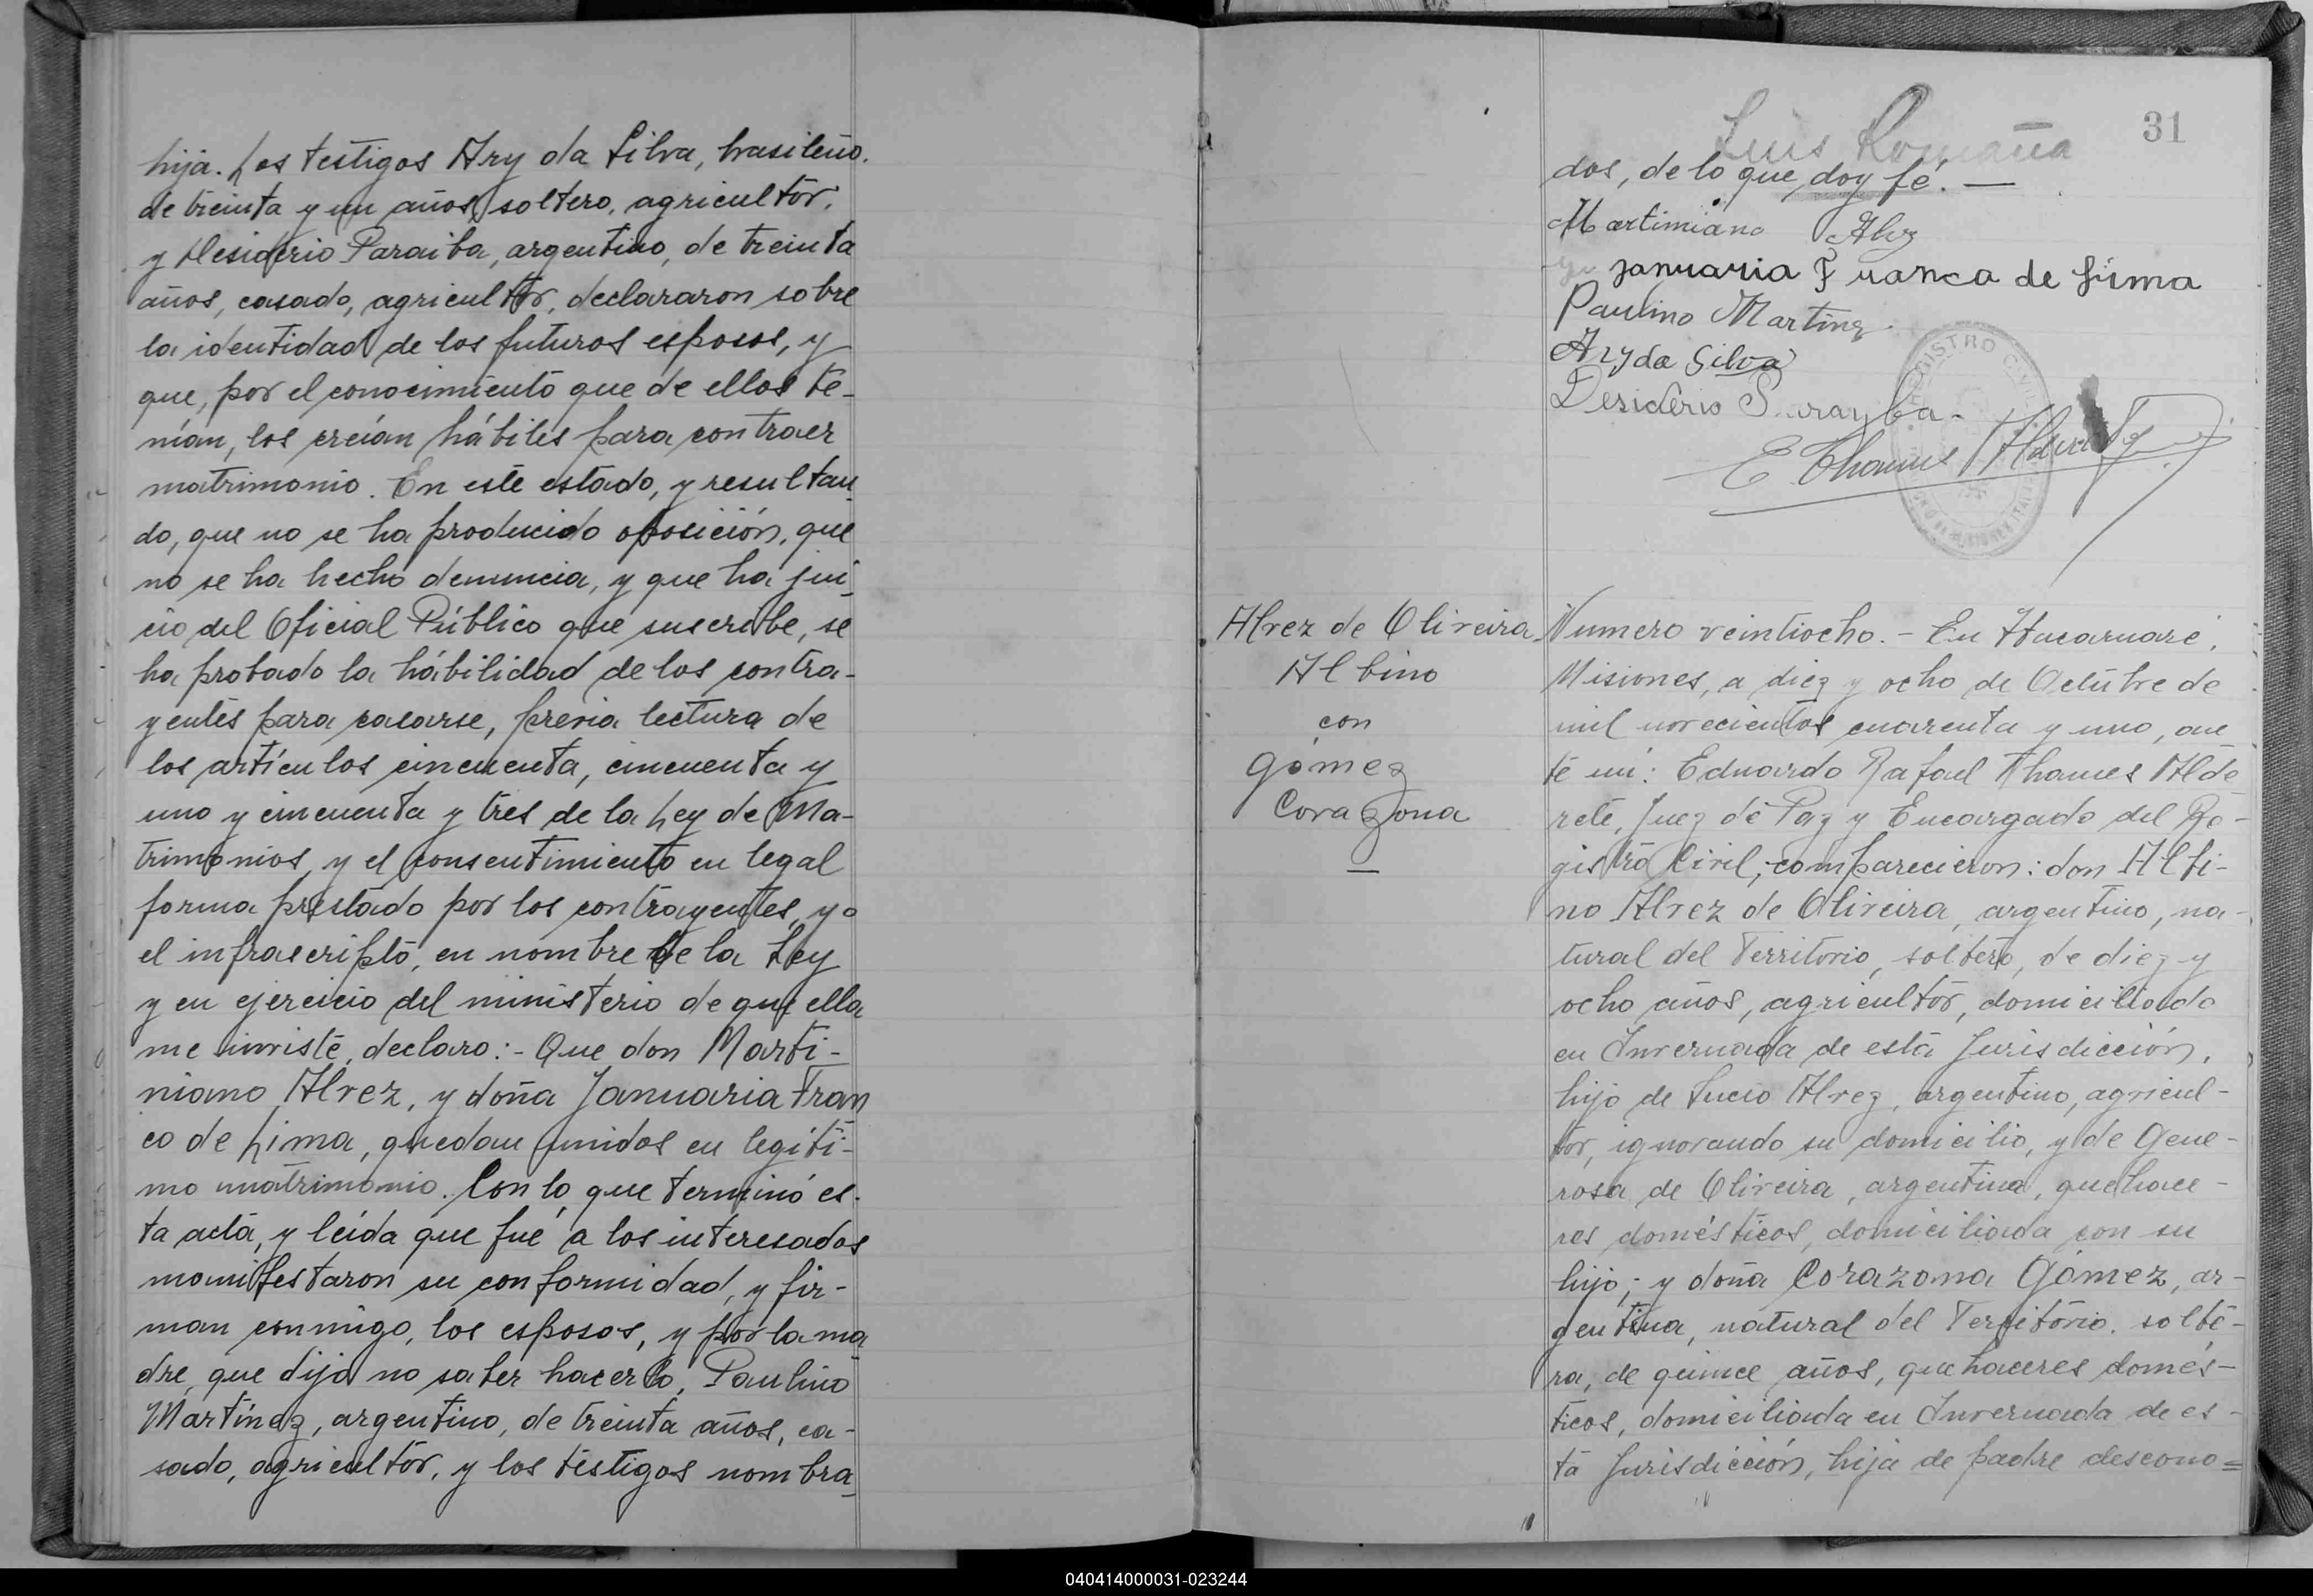 hija. Los testigos Ary da Silva, brasileño.
de treinta y un años, soltero, agricultor,
y Desiderio Paraiba, argentino, de treinta
años, casado, agricultor, declararon sobre
la identidad de los futuros esposos, y
que, por el conocimiento que de ellos te-
nían, los creían hábiles para contraer
matrimonio. En este estado, y resultan
do, que no se ha producido oposición, que
no se ha hecho denuncia, y que ha jui
cio del Oficial Público que suscribe, se
ha probado la hábilidad de los contra-
yentes para casarse, previa lectura de
los artículos cincuenta, cincuenta y
uno y cincuenta y tres de la Ley de Ma-
trimonios, y el consentimiento en legal
forma prestado por los contrayentes, yo
el infrascripto, en nombre de la Ley
y en ejercicio del ministerio de que ella
me inviste, declaro:- Que don Marti-
niano Alvez, y doña Januaria Fran
co de Lima, quedan unidos en legiti-
mo matrimonio. Con lo que terminó es-
ta acta, y leída que fué a los interesados
manifestaron su conformidad, y fir-
man conmigo, los esposos, y por la ma
dre, que dijo no saber hacerlo, Paulino
Martínez, argentino, de treinta años, ca-
sado, agricultor, y los testigos nombra
31
Luis Romaña
dos, de lo que doy fé. —
Martimiano Alvz
januaria Franca de Lima
Paulino Martinz
Ary da Silva
Desiderio
E Thames Alderete
REGISTRO CIVIL
Alvez de Oliveira
Albino
con
Gómez
Corazona
—
Numero veintiocho.- En Itacaruaré,
Misiones, a diez y ocho de Octubre de
mil novecientos cuarenta y uno, an
te mi: Eduardo Rafael Thames Alde
rete, Juez de Paz y Encargado del Re-
gistro Civil; comparecieron: don Albi-
no Alvez de Oliveira, argentino, na-
tural del Territorio, soltero, de diez y
ocho años, agricultor, domiciliado
en Invernada de esta Jurisdicción,
hijo de Lucio Alvez, argentino, agricul-
tor, ignorando su domicilio, y de Gene-
rosa de Oliveira, argentina, quehace-
res domésticos, domiciliada con su
hijo; y doña Corazona Gómez, ar-
gentina, natural del Territorio, solte-
ra, de quince años, quehaceres domés-
ticos, domiciliada en Invernada de es-
ta Jurisdicción, hija de padre descono=
040414000031-023244